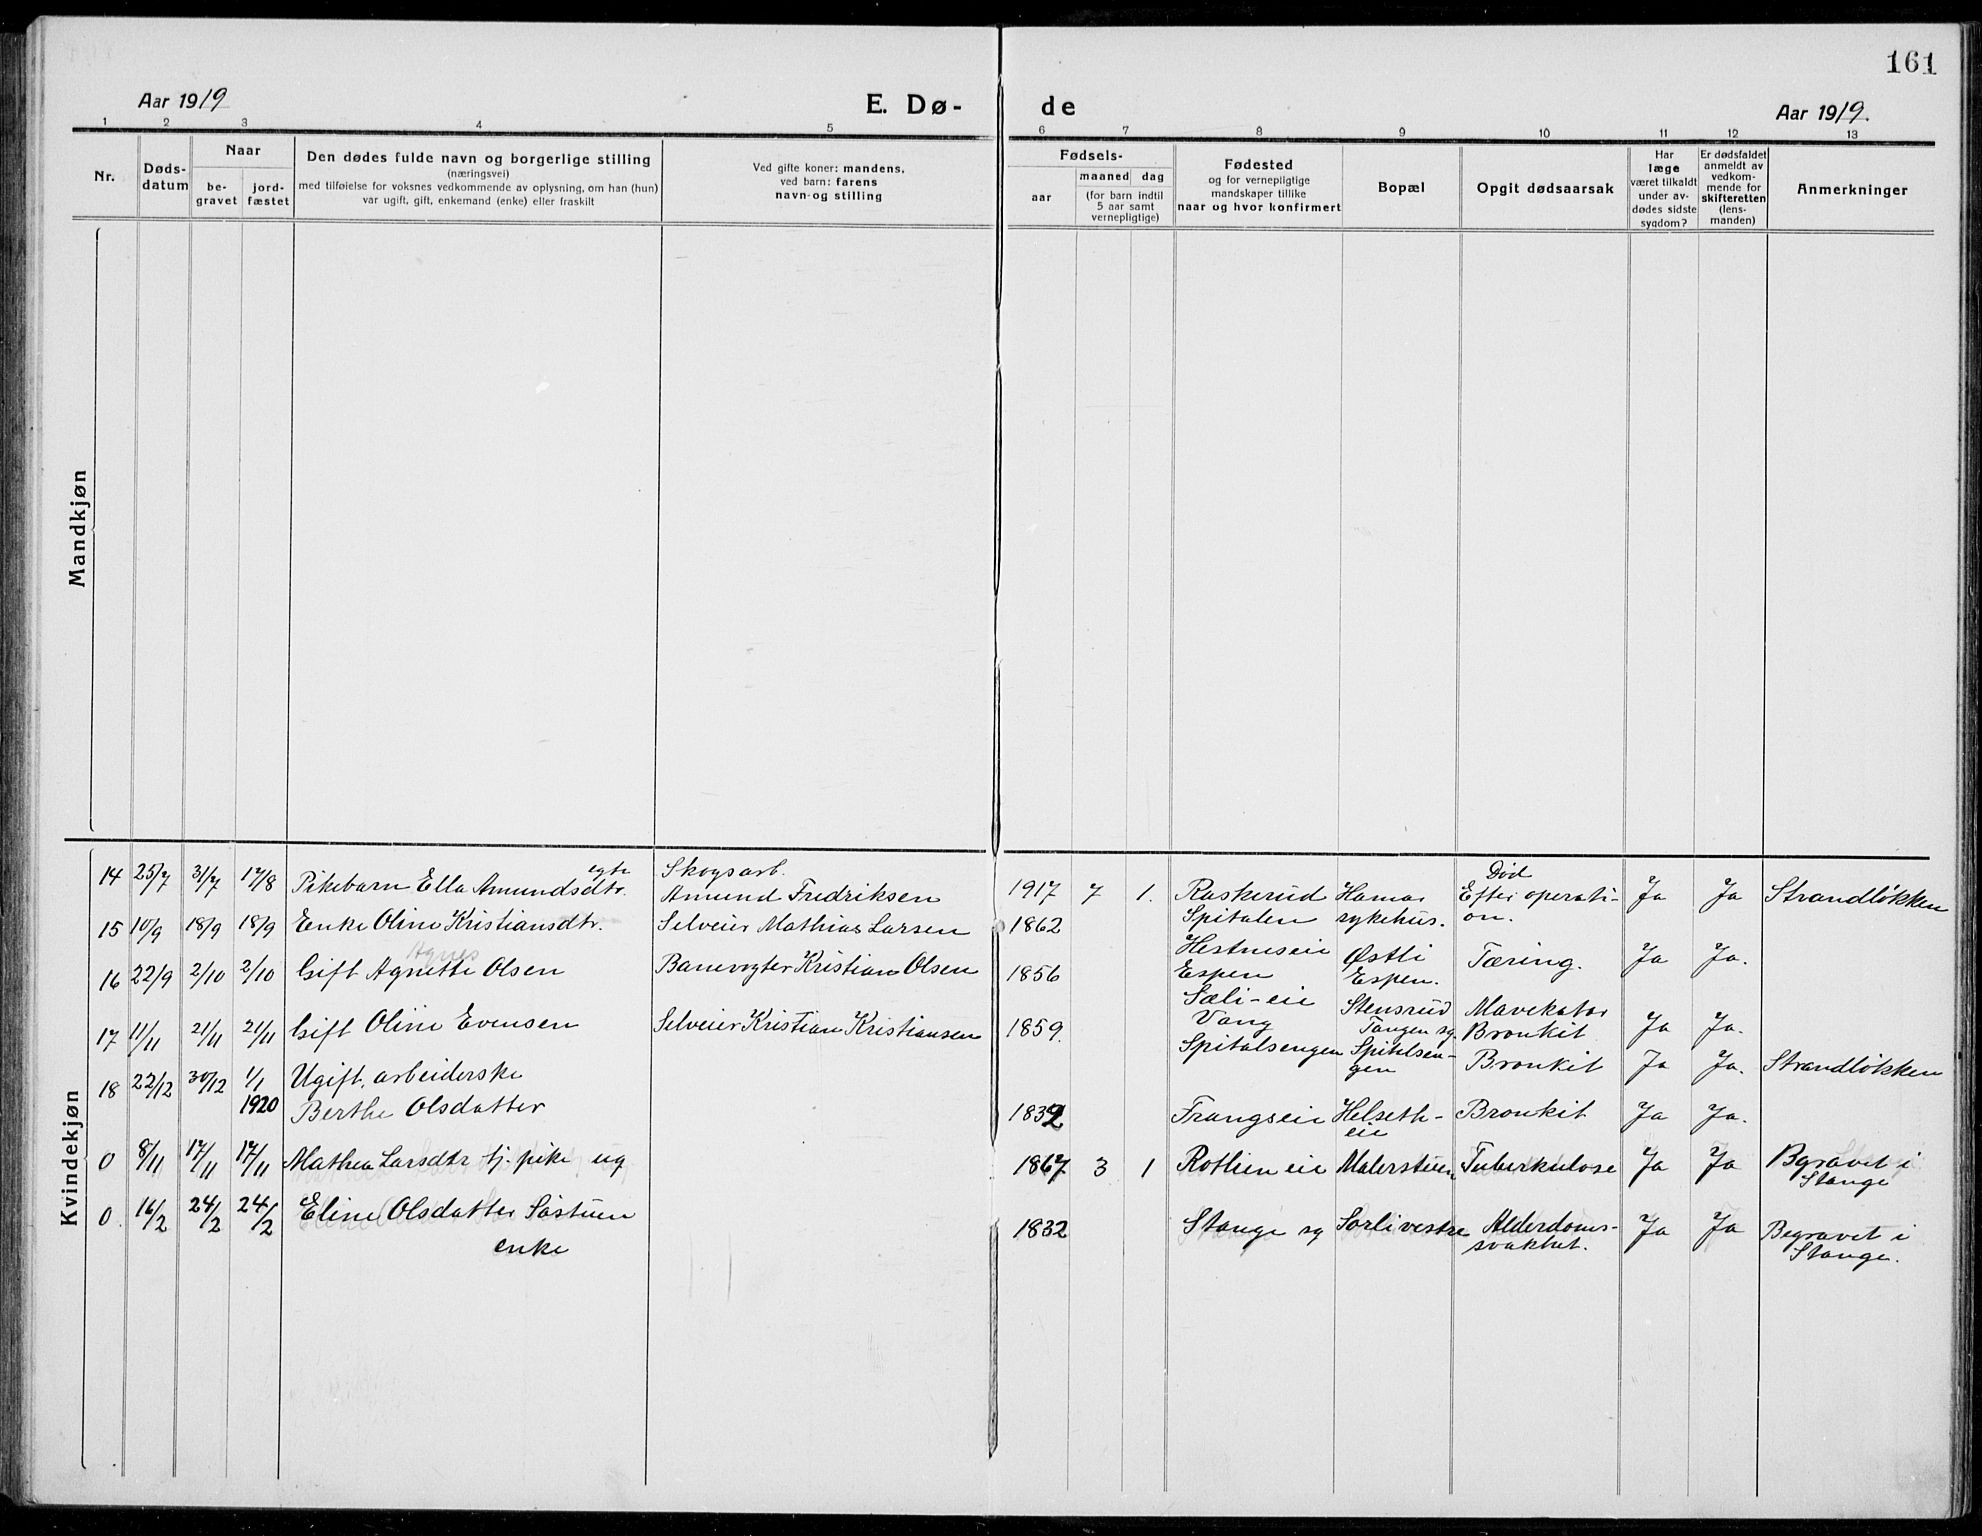 161
Aar 1919
E. Dø-
de
Aar 1919.
1 2 3 4 5 6 7 8 9 10 11 12 13
Nr.
Døds-
datum
Naar
be-
gravet
jord-
fæstet
Den dødes fulde navn og borgerlige stilling
(næringsvei)
med tilføielse for voksnes vedkommende av oplysning, om han (hun)
var ugift, gift, enkemand (enke) eller fraskilt
Ved gifte koner: mandens,
ved barn: farens
navn og stilling
Fødsels-
aar
maaned dag
(for barn indtil
5 aar samt
vernepligtige)
Fødested
og for vernepligtige
mandskaper tillike
naar og hvor konfirmert
Bopæl
Opgit dødsaarsak
Har
læge
været tilkaldt
under av-
dødes sidste
sygdom?
Er dødsfaldet
anmeldt av
vedkom-
mende for
skifteretten
(lens-
manden)
Anmerkninger
Mandkjøn
Kvindekjøn
14 25/7 31/7 17/8 Pikebarn Ella Amundsdtr. egte
Skogsarb.
Amund Fredriksen
1917 7 1. Raskerud
Spitalen
Hamar
sykehus.
Død
Efter operati-
on.
Ja Ja Strandløkken
15 10/9 18/9 18/9 Enke Oline Kristiansdtr. Selveier Mathias Larsen 1862
Hestneseie
Espen
Østli
Espen.
Tæring. Ja Ja.
Agnes
16 22/9 2/10 2/10 Gift Agnette Olsen Banevogter Kristian Olsen 1856
Sæli-eie
Vang
Stensrud
Tangen sg.
Mavekatar
Bronkit
Ja Ja.
17 11/11 21/11 21/11 Gift Oline Evensen Selveier Kristian Kristiansen 1859.
Spitalsengen Spitalsen-
gen
Bronkit Ja Ja. Strandløkken
18 22/12 30/12 1/1
1920
Ugift, arbeiderske
Berthe Olsdatter
1832 Frangseie Helseth-
eie
Bronkit Ja Ja.
0 8/11 17/11 17/11 Mathea Larsdtr tj. pike ug 1867 3 1 Rotlien eie Malerstuen Tuberkulose Ja Ja Bgravet i
Stange
0. 16/2 24/2 24/2 Eline Olsdatter Søstuen
enke
1832 Stange sg Sørlivestre Alderdoms-
svakhet.
Ja Ja Begravet i
Stange.